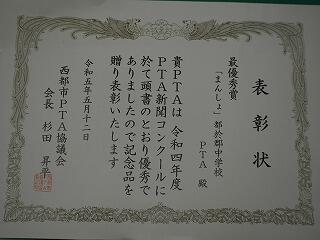 表彰状
最優秀賞
「まんしょ」都於郡中学校
PTA 殿
貴PTAは 令和四年度
PTA新聞コンクールに
於て頭書のとおり優秀で
ありましたので記念品を
贈り表彰いたします
令和五年五月十二日
西都市PTA協議会
会長 杉田 昇平